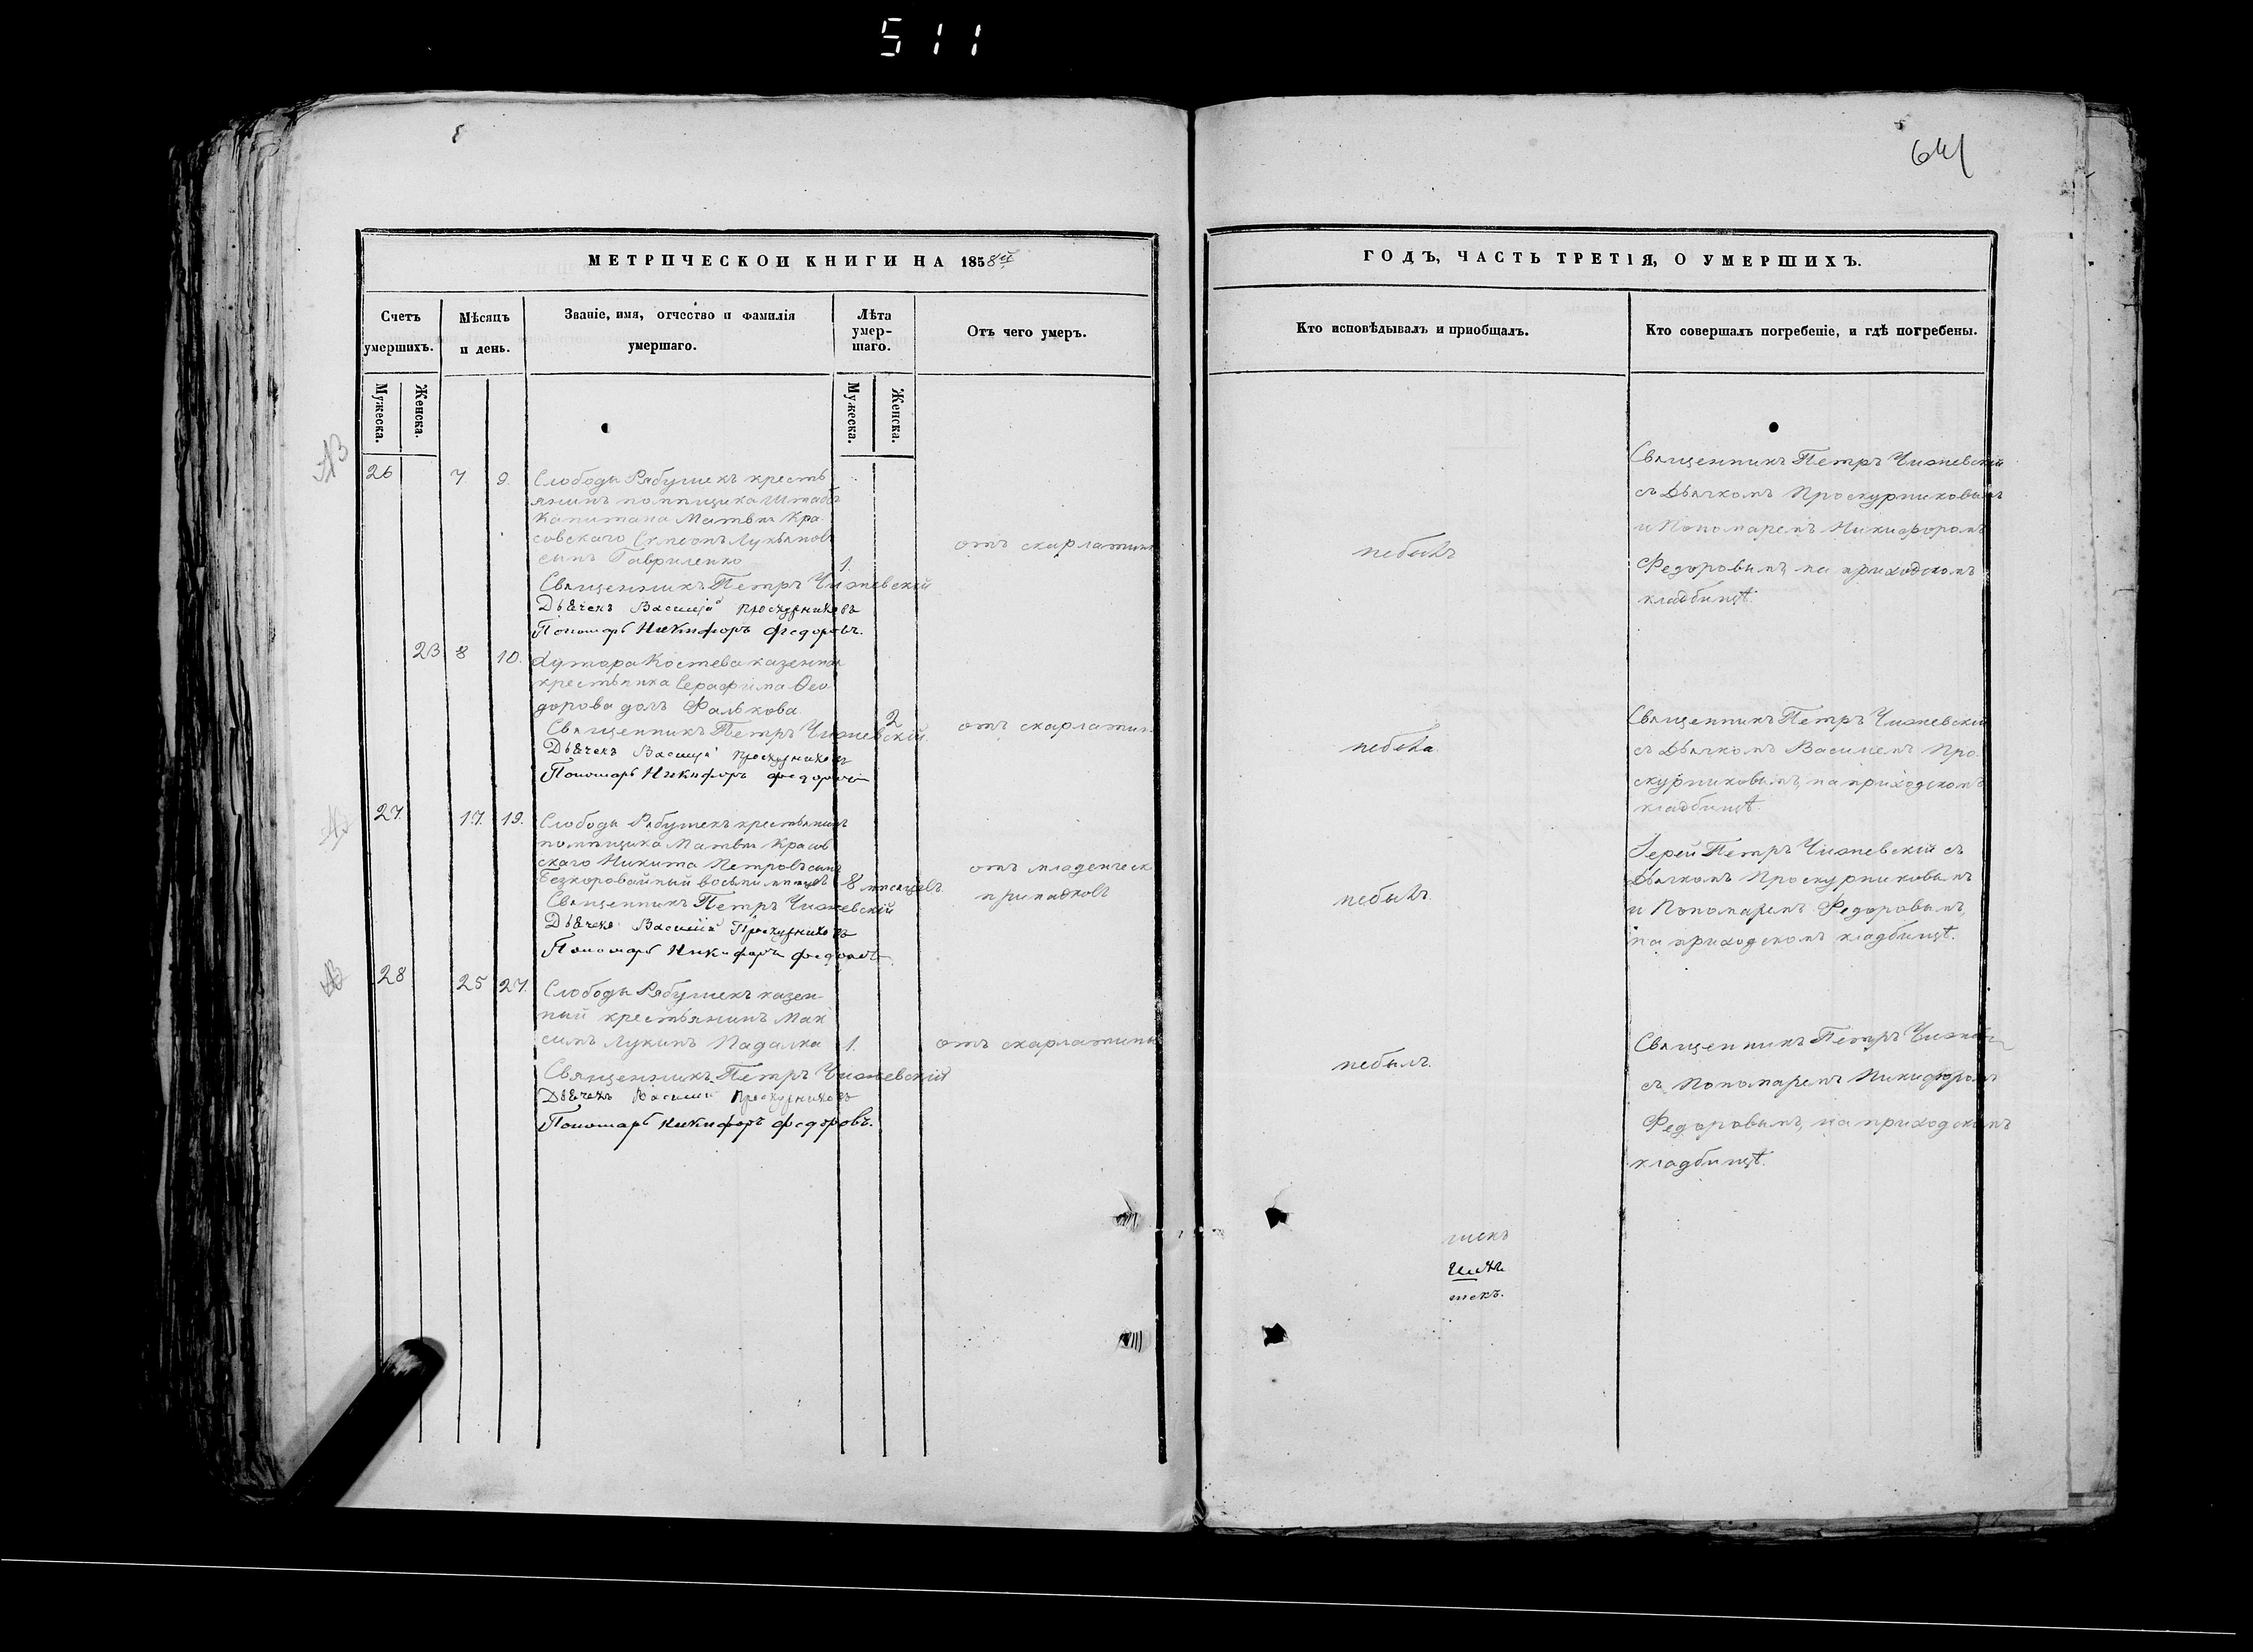 511
641
МЕТРИЧЕСКОЙ КНИГИ НА 1858й
Счетъ умершихъ.
Мужеска.
Женска.
Мѣсяцъ и день.
Званіе, имя, отчество и фамилія
умершаго.
Лѣта
умер-
шаго.
Мужеска.
Женска.
Отъ чего умеръ.
26 7. 9. Слободы Рябушекъ кресть
янинъ помѣщика Штабсъ
Капитана Матвѣя Кра-
совскаго Симеонъ Лукьяновъ
сынъ Гавриленко 1. отъ скарлатины
Священникъ Петръ Чижевскій
Дьячекъ Василій Проскурниковъ
Пономарь Никифоръ Федоровъ.
23 8 10. Хутора Костева казенная
крестьянка Серафима Ѳео-
дорова дочь Фалькова 2 отъ скарлатин
Священникъ Петръ Чижевскій.
Дьячекъ Василій Проскурниковъ
Пономарь Никифоръ Федоровъ
27. 17. 19. Слободы Рябушекъ крестьянинъ
помѣщика Матвѣя Красов
скаго Никита Петровъ сынъ
Безкоровайный восьми мѣсяцевъ 8 мѣсяцевъ. отъ младенческ
припадковъ
Священникъ Петръ Чижевскій
Дьячекъ Василій Проскурниковъ
Пономарь Никифоръ Федоровъ
28 25 27. Слободы Рябушекъ казен-
ный крестьянинъ Мак
симъ Лукинъ Падалка 1. отъ скарлатины
Священникъ Петръ Чижевскій
Дьячекъ Василій Проскурниковъ
Пономарь Никифоръ Федоровъ.
ГОДЪ, ЧАСТЬ ТРЕТІЯ, О УМЕРШИХЪ.
Кто исповѣдывалъ и приобщалъ.
Кто совершалъ погребеніе, и гдѣ погребены.
небылъ
Священникъ Петръ Чижевскій
съ Дьячкомъ Проскурниковымъ
и Пономаремъ Никифоромъ
Федоровымъ, на приходскомъ
кладбищѣ.
небыла
Священникъ Петръ Чижевскій
съ Дьячкомъ Василіемъ Про-
скурниковымъ, на приходскомъ
кладбищѣ.
небылъ.
Іерей Петръ Чижевскій съ
Дьячкомъ Проскурниковымъ
и Пономаремъ Федоровымъ,
на приходскомъ кладбищѣ.
небылъ.
Священникъ Петръ Чижевск
съ Пономаремъ Никифоромъ
Федоровымъ, на приходскомъ
кладбищѣ.